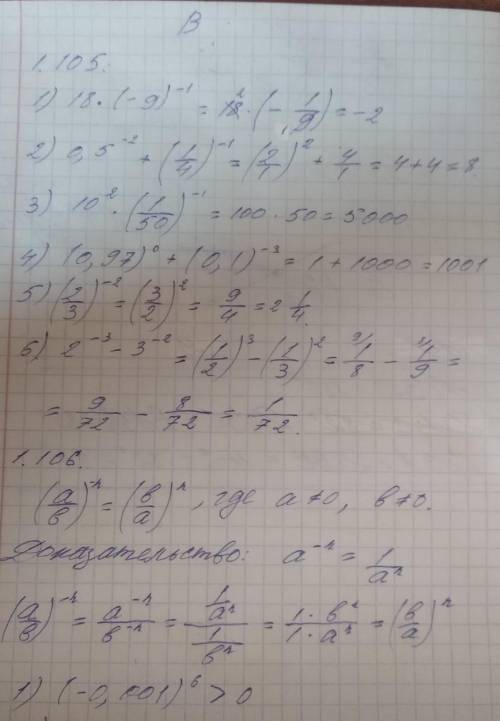 В
1.105.
1) 18·(-9)⁻¹ = 18²·(-1/9) = -2
2) 0,5⁻² + (1/4)⁻¹ = (2/1)² + 4/1 = 4+4=8.
3) 10²·(1/50)⁻¹ = 100·50 = 5000
4) (0,97)⁰ + (0,1)⁻³ = 1+1000 = 1001
5) (2/3)⁻² = (3/2)² = 9/4 = 2 1/4.
6) 2⁻³ - 3⁻² = (1/2)³ - (1/3)² = ⁹⁾1/8 - ⁸⁾1/9 =
= 9/72 - 8/72 = 1/72.
1.106.
(a/в)⁻ⁿ = (в/a)ⁿ, где a≠0, в≠0.
Доказательство: a⁻ⁿ = 1/aⁿ
(a/в)⁻ⁿ = a⁻ⁿ/в⁻ⁿ = (1/aⁿ)/(1/вⁿ) = 1·вⁿ/1·aⁿ = (в/a)ⁿ
1) (-0,001)⁶ > 0